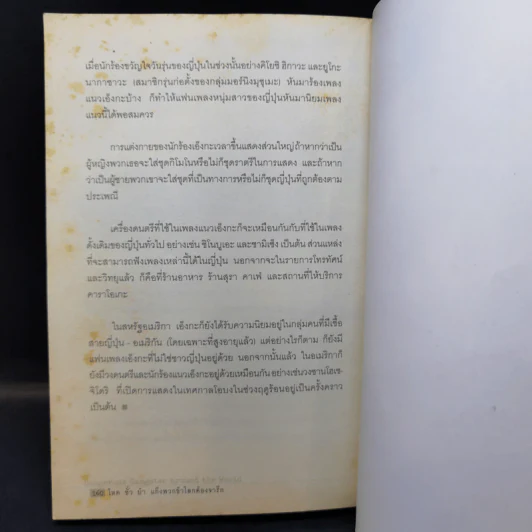 เมื่อนักร้องขวัญใจวันรุ่นของญี่ปุ่นในช่วงนั้นอย่างคิโยชิ ฮิกาวะ และยูโกะ
นากาซาวะ (สมาชิกรุ่นก่อตั้งของกลุ่มมอร์นิงมุซูเมะ) หันมาร้องเพลง
แนวเอ็งกะบ้าง ก็ทำให้แฟนเพลงหนุ่มสาวของญี่ปุ่นหันมานิยมเพลง
แนวนี้ได้พอสมควร
การแต่งกายของนักร้องเอ็งกะเวลาขึ้นแสดงส่วนใหญ่ถ้าหากว่าเป็น
ผู้หญิงพวกเธอจะใส่ชุดกิโมโนหรือไม่ก็ชุดราตรีในการแสดง และถ้าหาก
ว่าเป็นผู้ชายพวกเขาจะใส่ชุดที่เป็นทางการหรือไม่ก็ชุดญี่ปุ่นที่ถูกต้องตาม
ประเพณี
เครื่องดนตรีที่ใช้ในเพลงแนวเอ็งกะก็จะเหมือนกันกับที่ใช้ในเพลง
ดั้งเดิมของญี่ปุ่นทั่วไป อย่างเช่น ชิโนบูเอะ และซามิเซ็ง เป็นต้น ส่วนแหล่ง
ที่จะสามารถฟังเพลงเหล่านี้ได้ในญี่ปุ่น นอกจากจะในรายการโทรทัศน์
และวิทยุแล้ว ก็คือที่ร้านอาหาร ร้านสุรา คาเฟ่ และสถานที่ให้บริการ
คาราโอเกะ
ในสหรัฐอเมริกา เอ็งกะก็ยังได้รับความนิยมอยู่ในกลุ่มคนที่มีเชื้อ
สายญี่ปุ่น - อเมริกัน (โดยเฉพาะที่สูงอายุแล้ว) แต่อย่างไรก็ตาม ก็ยังมี
แฟนเพลงเอ็งกะที่ไม่ใช่ชาวญี่ปุ่นอยู่ด้วย นอกจากนั้นแล้ว ในอเมริกาก็
ยังมีวงดนตรีและนักร้องแนวเอ็งกะอยู่ด้วยเหมือนกัน อย่างเช่นวงซานโฮเซ-
ชิโดริ ที่เปิดการแสดงในเทศกาลโอบงในช่วงฤดูร้อนอยู่เป็นครั้งคราว
เป็นต้น
Gangster Around the World
โคตร ชั่ว ผ่า แก๊งพวกข้าโลกต้องจารึก